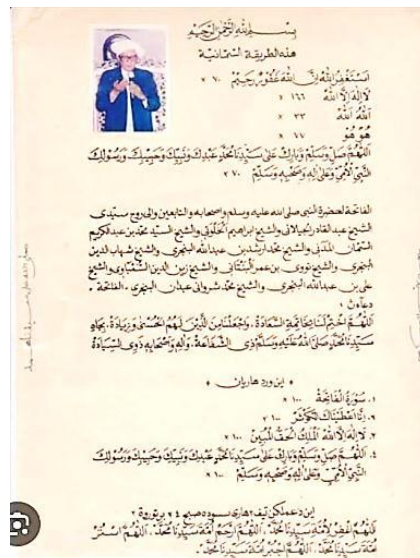 بسم الله الرحمن الرحيم
هذه الطريقة السمانية
استغفر الله ان الله غفور رحيم × ٧٠
لا اله الا الله × ١٦٦
الله الله × ٣٣
هو هو × ٧٧
اللهم صل وسلم وبارك على سيدنا محمد عبدك ونبيك وحبيبك ورسولك
النبي الأمي وعلى اله وصحبه وسلم × ٧٠
الفاتحة لحضرة النبي صلى الله عليه وسلم واصحابه والتابعين والى روح سيدى
الشيخ عبد القادر الجيلانى والشيخ ابراهيم الخلوتى والشيخ السيد محمد بن عبد الكريم
السمان المدنى والشيخ محمد ارشد بن عبد الله البنجرى والشيخ شهاب الدين
البنجرى والشيخ نووى بن عمر البنتانى والشيخ زين الدين السمباوى والشيخ
على بن عبد الله البنجرى والشيخ محمد شروانى عبدان البنجرى . الفاتحة .
دعاءن :
اللهم اختم لنا بخاتمة السعادة . واجعلنا من الذين لهم الحسنى وزيادة . بجاه
سيدنا محمد صلى الله عليه وسلم ذى الشفاعة . واله واصحابه ذوى السيادة
* اين ورد هاريان *
١. سورة الفاتحة × ١٠٠
٢. انا اعطيناك الكوثر × ١٠٠
٣. لا اله الا الله الملك الحق المبين × ١٠٠
٤. اللهم صل وسلم وبارك على سيدنا محمد عبدك ونبيك وحبيبك ورسولك
النبي الأمي وعلى اله وصحبه وسلم × ١٠٠
اين دعء مكن تيف٢ هارى سسوده صبح
اللهم اغفر لأمة سيدنا محمد . اللهم ارحم امة سيدنا محمد . اللهم استر
امة سيدنا محمد . اللهم اجبر امة سيدنا محمد .